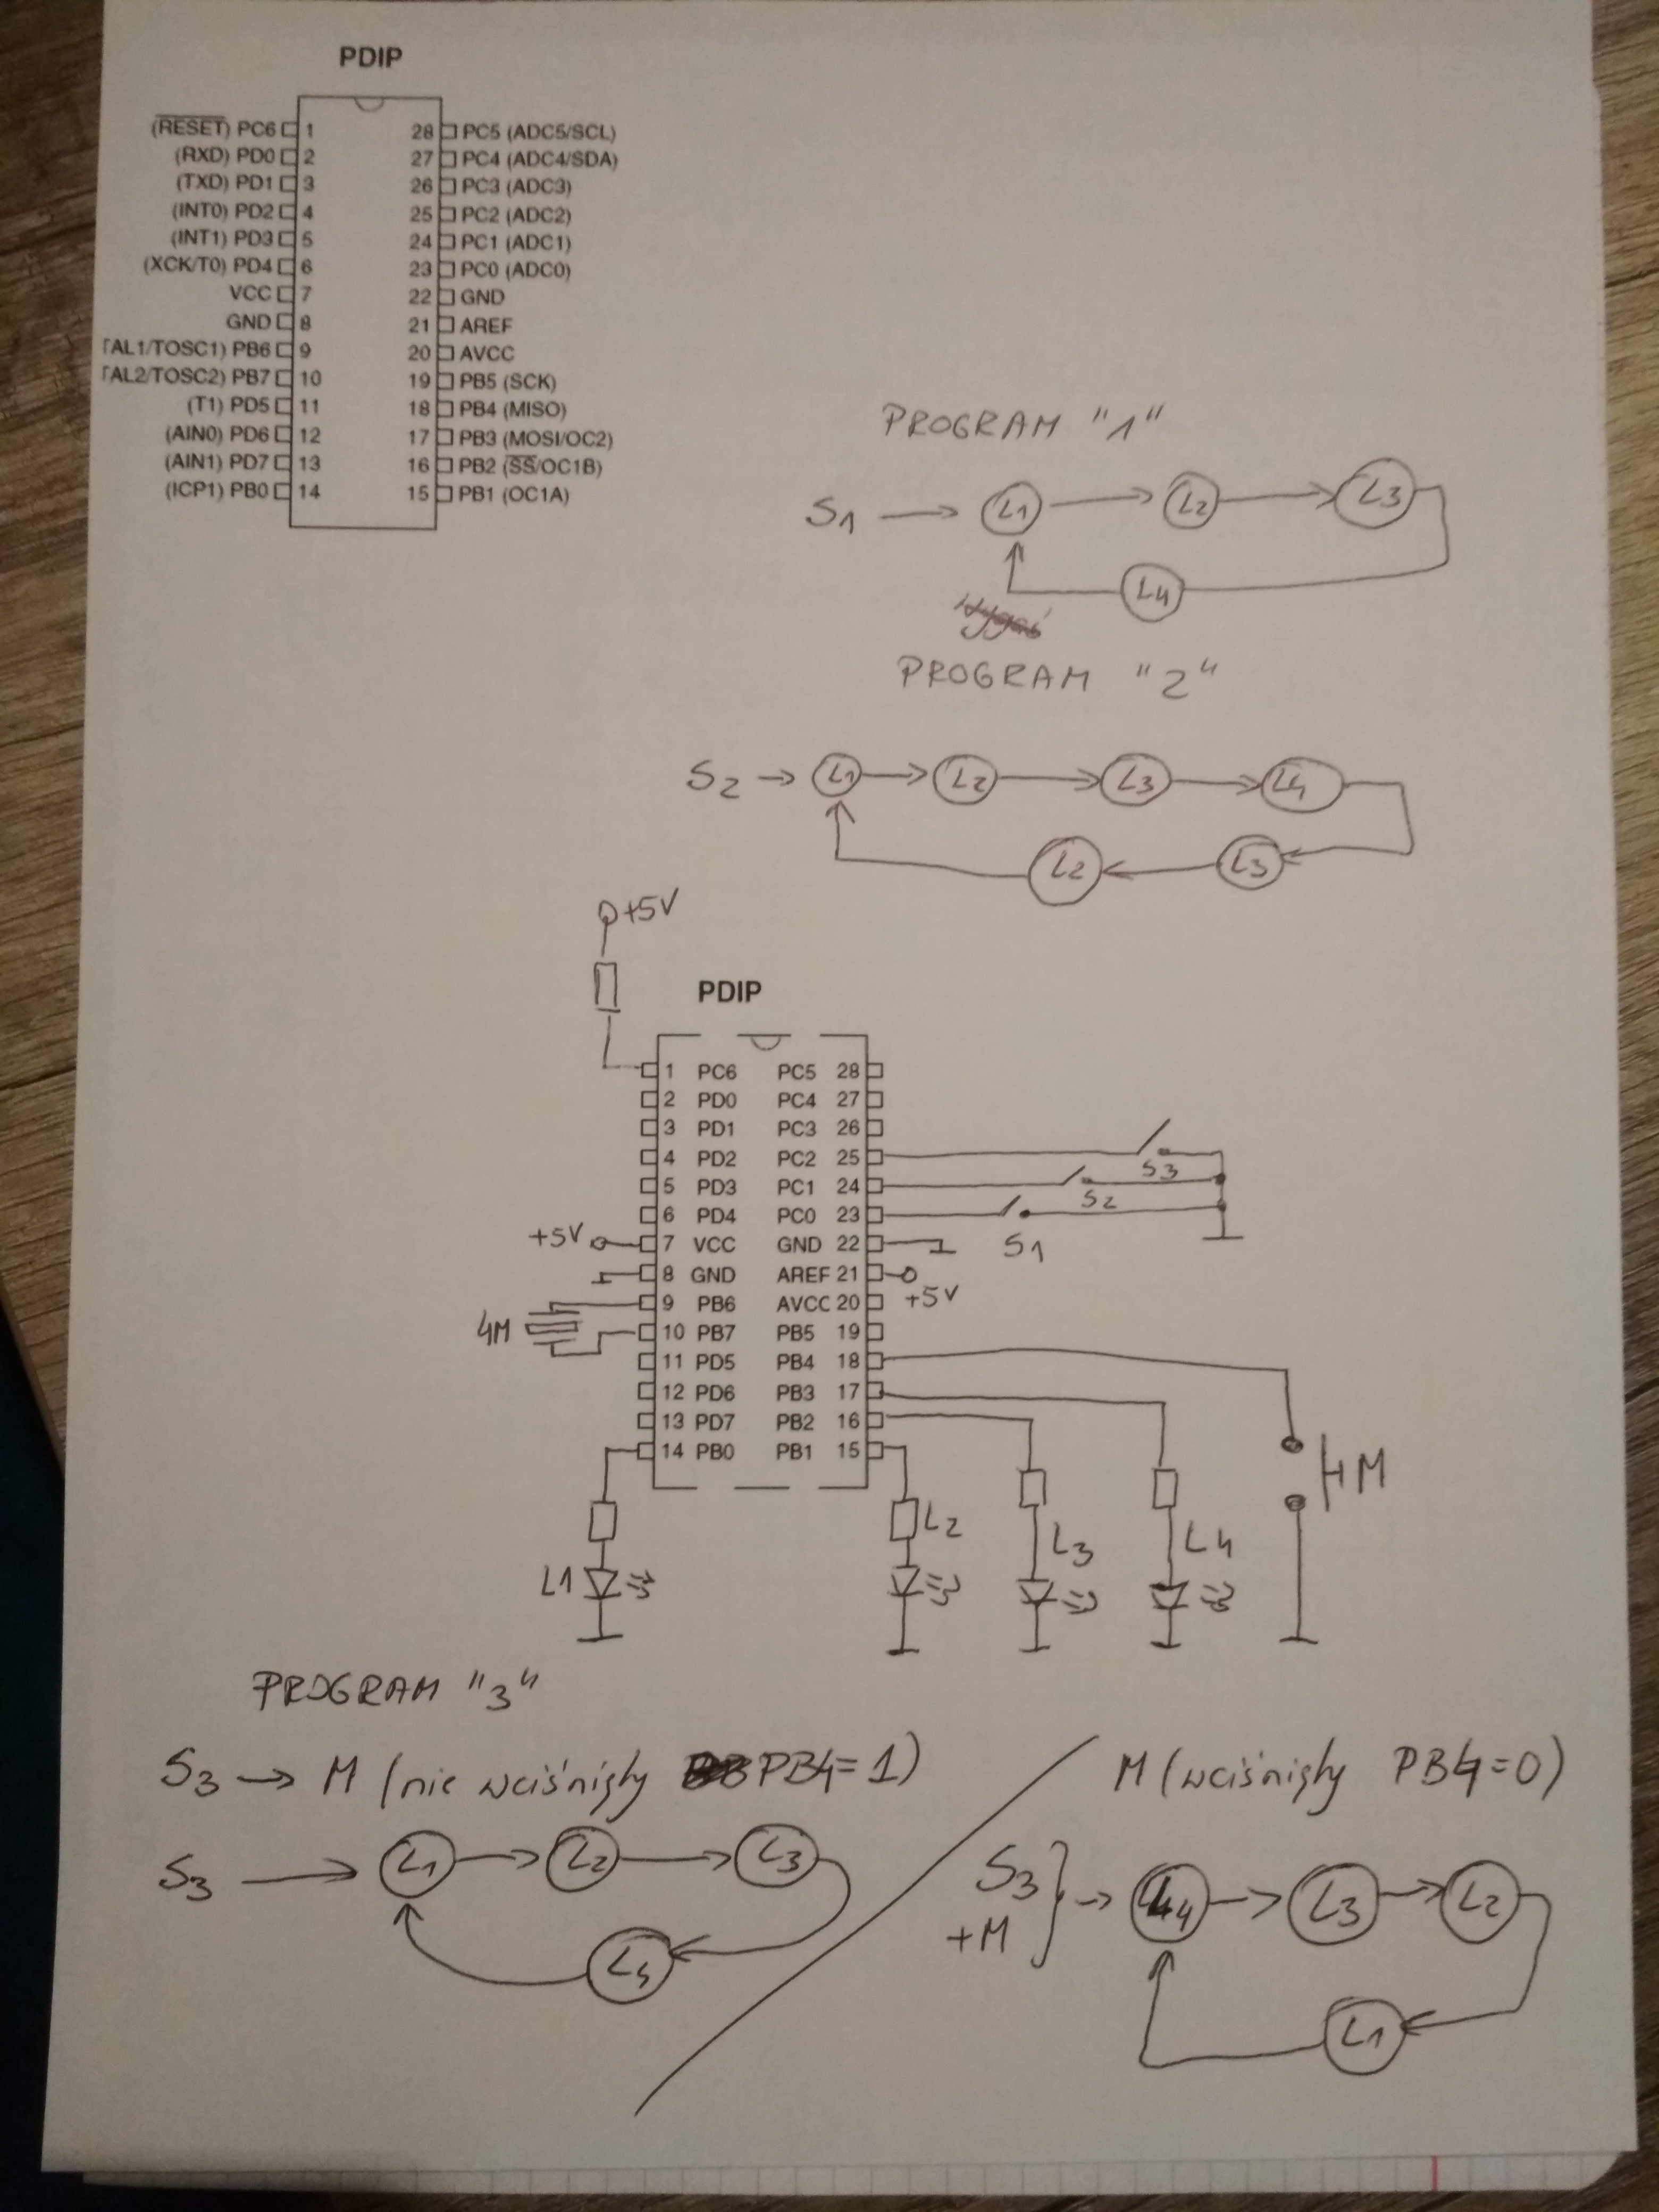 PDIP
(RESET) PC6 1 28 PC5 (ADC5/SCL)
(RXD) PD0 2 27 PC4 (ADC4/SDA)
(TXD) PD1 3 26 PC3 (ADC3)
(INT0) PD2 4 25 PC2 (ADC2)
(INT1) PD3 5 24 PC1 (ADC1)
(XCK/T0) PD4 6 23 PC0 (ADC0)
VCC 7 22 GND
GND 8 21 AREF
TAL1/TOSC1) PB6 9 20 AVCC
TAL2/TOSC2) PB7 10 19 PB5 (SCK)
(T1) PD5 11 18 PB4 (MISO)
(AIN0) PD6 12 17 PB3 (MOSI/OC2)
(AIN1) PD7 13 16 PB2 (SS/OC1B)
(ICP1) PB0 14 15 PB1 (OC1A)
PROGRAM "1"
S1 L1 L2 L3
L4
PROGRAM "2"
S2 L1 L2 L3 L4
L2 L3
+5V
PDIP
1 PC6 PC5 28
2 PD0 PC4 27
3 PD1 PC3 26
4 PD2 PC2 25
S3
5 PD3 PC1 24
S2
6 PD4 PC0 23
S1
+5V 7 VCC GND 22
8 GND AREF 21
+5V
9 PB6 AVCC 20
4M
10 PB7 PB5 19
11 PD5 PB4 18
12 PD6 PB3 17
13 PD7 PB2 16
14 PB0 PB1 15
M
L1 L2 L3 L4
PROGRAM "3"
S3 → M (nie wciśnięty PB4=1)
M (wciśnięty PB4=0)
S3 L1 L2 L3
L4
S3 + M } → L4 L3 L2
L1